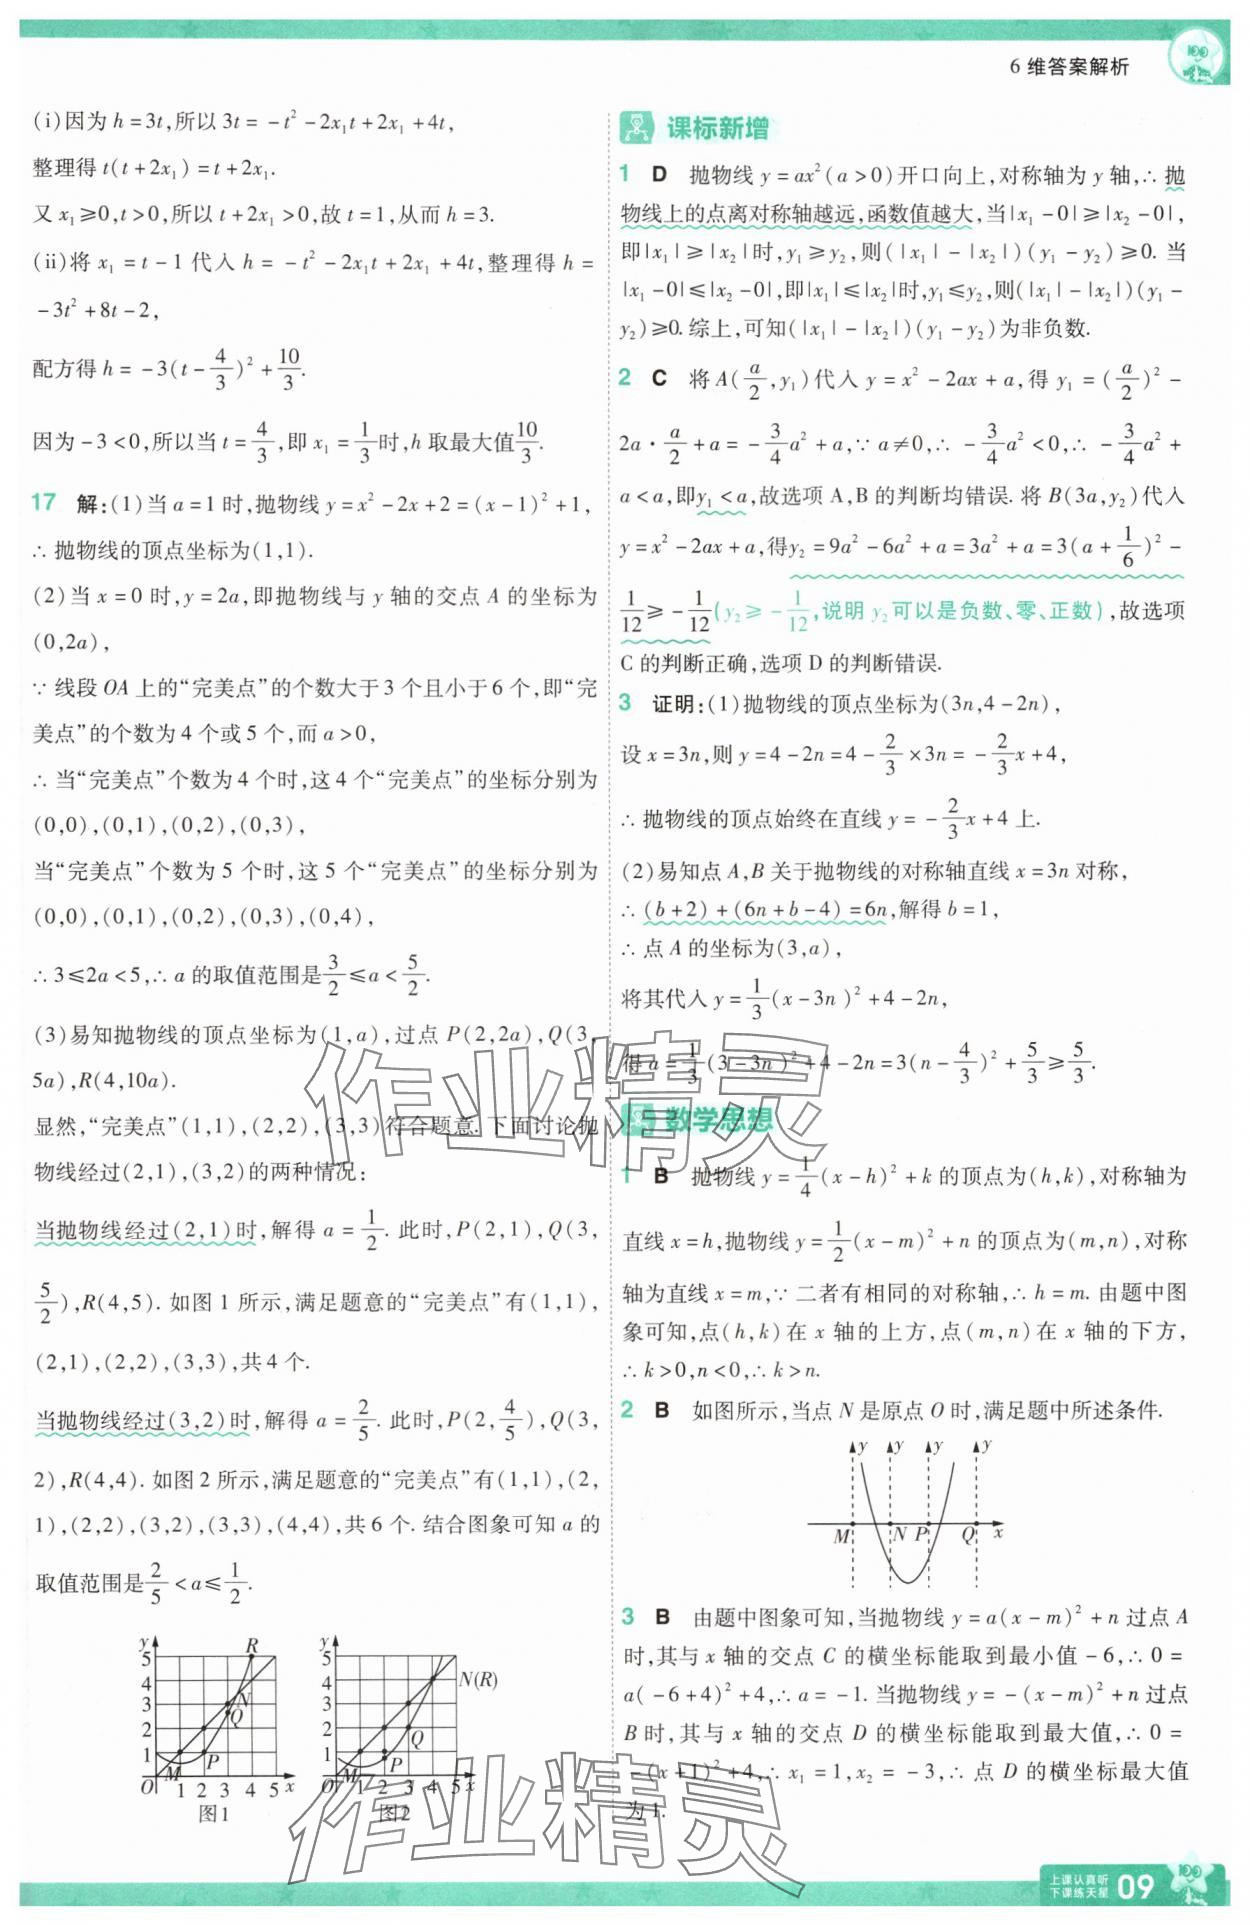 6 维答案解析
(i)因为 h=3t,所以 3t=-t²-2x₁t+2x₁+4t,
整理得 t(t+2x₁)=t+2x₁.
又 x₁≥0,t>0,所以 t+2x₁>0,故 t=1,从而 h=3.
(ii)将 x₁=t-1 代入 h=-t²-2x₁t+2x₁+4t,整理得 h=
-3t²+8t-2,
配方得 h=-3(t-4/3)²+10/3.
因为-3<0,所以当 t=4/3,即 x₁=1/3时,h 取最大值10/3.
17 解:(1)当 a=1 时,抛物线 y=x²-2x+2=(x-1)²+1,
∴ 抛物线的顶点坐标为(1,1).
(2)当 x=0 时,y=2a,即抛物线与 y 轴的交点 A 的坐标为
(0,2a),
∵ 线段 OA 上的“完美点”的个数大于 3 个且小于 6 个,即“完
美点”的个数为 4 个或 5 个,而 a>0,
∴ 当“完美点”个数为 4 个时,这 4 个“完美点”的坐标分别为
(0,0),(0,1),(0,2),(0,3),
当“完美点”个数为 5 个时,这 5 个“完美点”的坐标分别为
(0,0),(0,1),(0,2),(0,3),(0,4),
∴3≤2a<5,∴a 的取值范围是3/2≤a<5/2.
(3)易知抛物线的顶点坐标为(1,a),过点 P(2,2a),Q(3,
5a),R(4,10a).
显然,“完美点”(1,1),(2,2),(3,3)符合题意.下面讨论抛
物线经过(2,1),(3,2)的两种情况:
当抛物线经过(2,1)时,解得 a=1/2.此时,P(2,1),Q(3,
5/2),R(4,5).如图 1 所示,满足题意的“完美点”有(1,1),
(2,1),(2,2),(3,3),共 4 个.
当抛物线经过(3,2)时,解得 a=2/5.此时,P(2,4/5),Q(3,
2),R(4,4).如图 2 所示,满足题意的“完美点”有(1,1),(2,
1),(2,2),(3,2),(3,3),(4,4),共 6 个.结合图象可知 a 的
取值范围是2/5<a≤1/2.
y 5 4 3 2 1 O 1 2 3 4 5 x M P Q N R
图1
y 5 4 3 2 1 O 1 2 3 4 5 x M P Q N(R)
图2
课标新增
1 D 抛物线 y=ax²(a>0)开口向上,对称轴为 y 轴,∴ 抛
物线上的点离对称轴越远,函数值越大,当|x₁-0|≥|x₂-0|,
即|x₁|≥|x₂|时,y₁≥y₂,则(|x₁|-|x₂|)(y₁-y₂)≥0.当
|x₁-0|≤|x₂-0|,即|x₁|≤|x₂|时,y₁≤y₂,则(|x₁|-|x₂|)(y₁-
y₂)≥0.综上,可知(|x₁|-|x₂|)(y₁-y₂)为非负数.
2 C 将 A(a/2,y₁)代入 y=x²-2ax+a,得 y₁=(a/2)²-
2a·a/2+a=-3/4a²+a,∵a≠0,∴-3/4a²<0,∴-3/4a²+
a<a,即y₁<a,故选项 A,B 的判断均错误.将 B(3a,y₂)代入
y=x²-2ax+a,得y₂=9a²-6a²+a=3a²+a=3(a+1/6)²-
1/12≥-1/12(y₂≥-1/12,说明 y₂可以是负数、零、正数),故选项
C 的判断正确,选项 D 的判断错误.
3 证明:(1)抛物线的顶点坐标为(3n,4-2n),
设 x=3n,则 y=4-2n=4-2/3×3n=-2/3x+4,
∴ 抛物线的顶点始终在直线 y=-2/3x+4 上.
(2)易知点 A,B 关于抛物线的对称轴直线 x=3n 对称,
∴(b+2)+(6n+b-4)=6n,解得 b=1,
∴ 点 A 的坐标为(3,a),
将其代入 y=1/3(x-3n)²+4-2n,
得 a=1/3(3-3n)²+4-2n=3(n-4/3)²+5/3≥5/3.
数学思想
1 B 抛物线 y=1/4(x-h)²+k 的顶点为(h,k),对称轴为
直线 x=h,抛物线 y=1/2(x-m)²+n 的顶点为(m,n),对称
轴为直线 x=m,∵ 二者有相同的对称轴,∴h=m.由题中图
象可知,点(h,k)在 x 轴的上方,点(m,n)在 x 轴的下方,
∴k>0,n<0,∴k>n.
2 B 如图所示,当点 N 是原点 O 时,满足题中所述条件.
y y y y
M N P Q x
3 B 由题中图象可知,当抛物线 y=a(x-m)²+n 过点 A
时,其与 x 轴的交点 C 的横坐标能取到最小值-6,∴0=
a(-6+4)²+4,∴a=-1.当抛物线 y=-(x-m)²+n 过点
B 时,其与 x 轴的交点 D 的横坐标能取到最大值,∴0=
-(x+1)²+4,∴x₁=1,x₂=-3,∴ 点 D 的横坐标最大值
为 1.
作业精灵
作业精灵
上课认真听
下课练天星
09